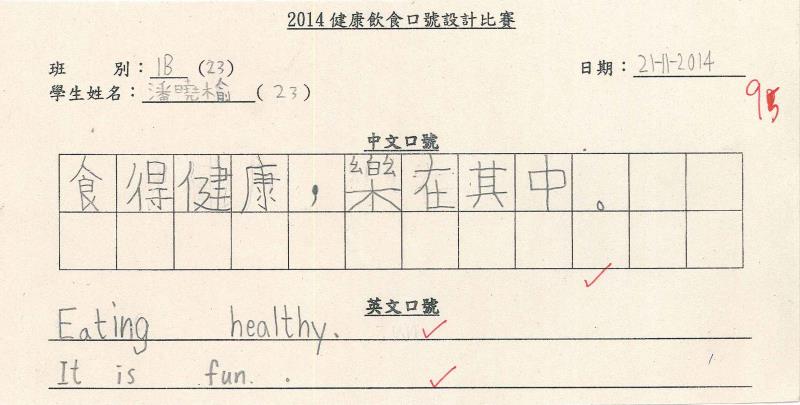 2014 健康飲食口號設計比賽
班 別：1B (23) 日期：21-11-2014
學生姓名：潘曉榆 (23)
95
中文口號
食得健康，樂在其中。
英文口號
Eating healthy.
It is fun.